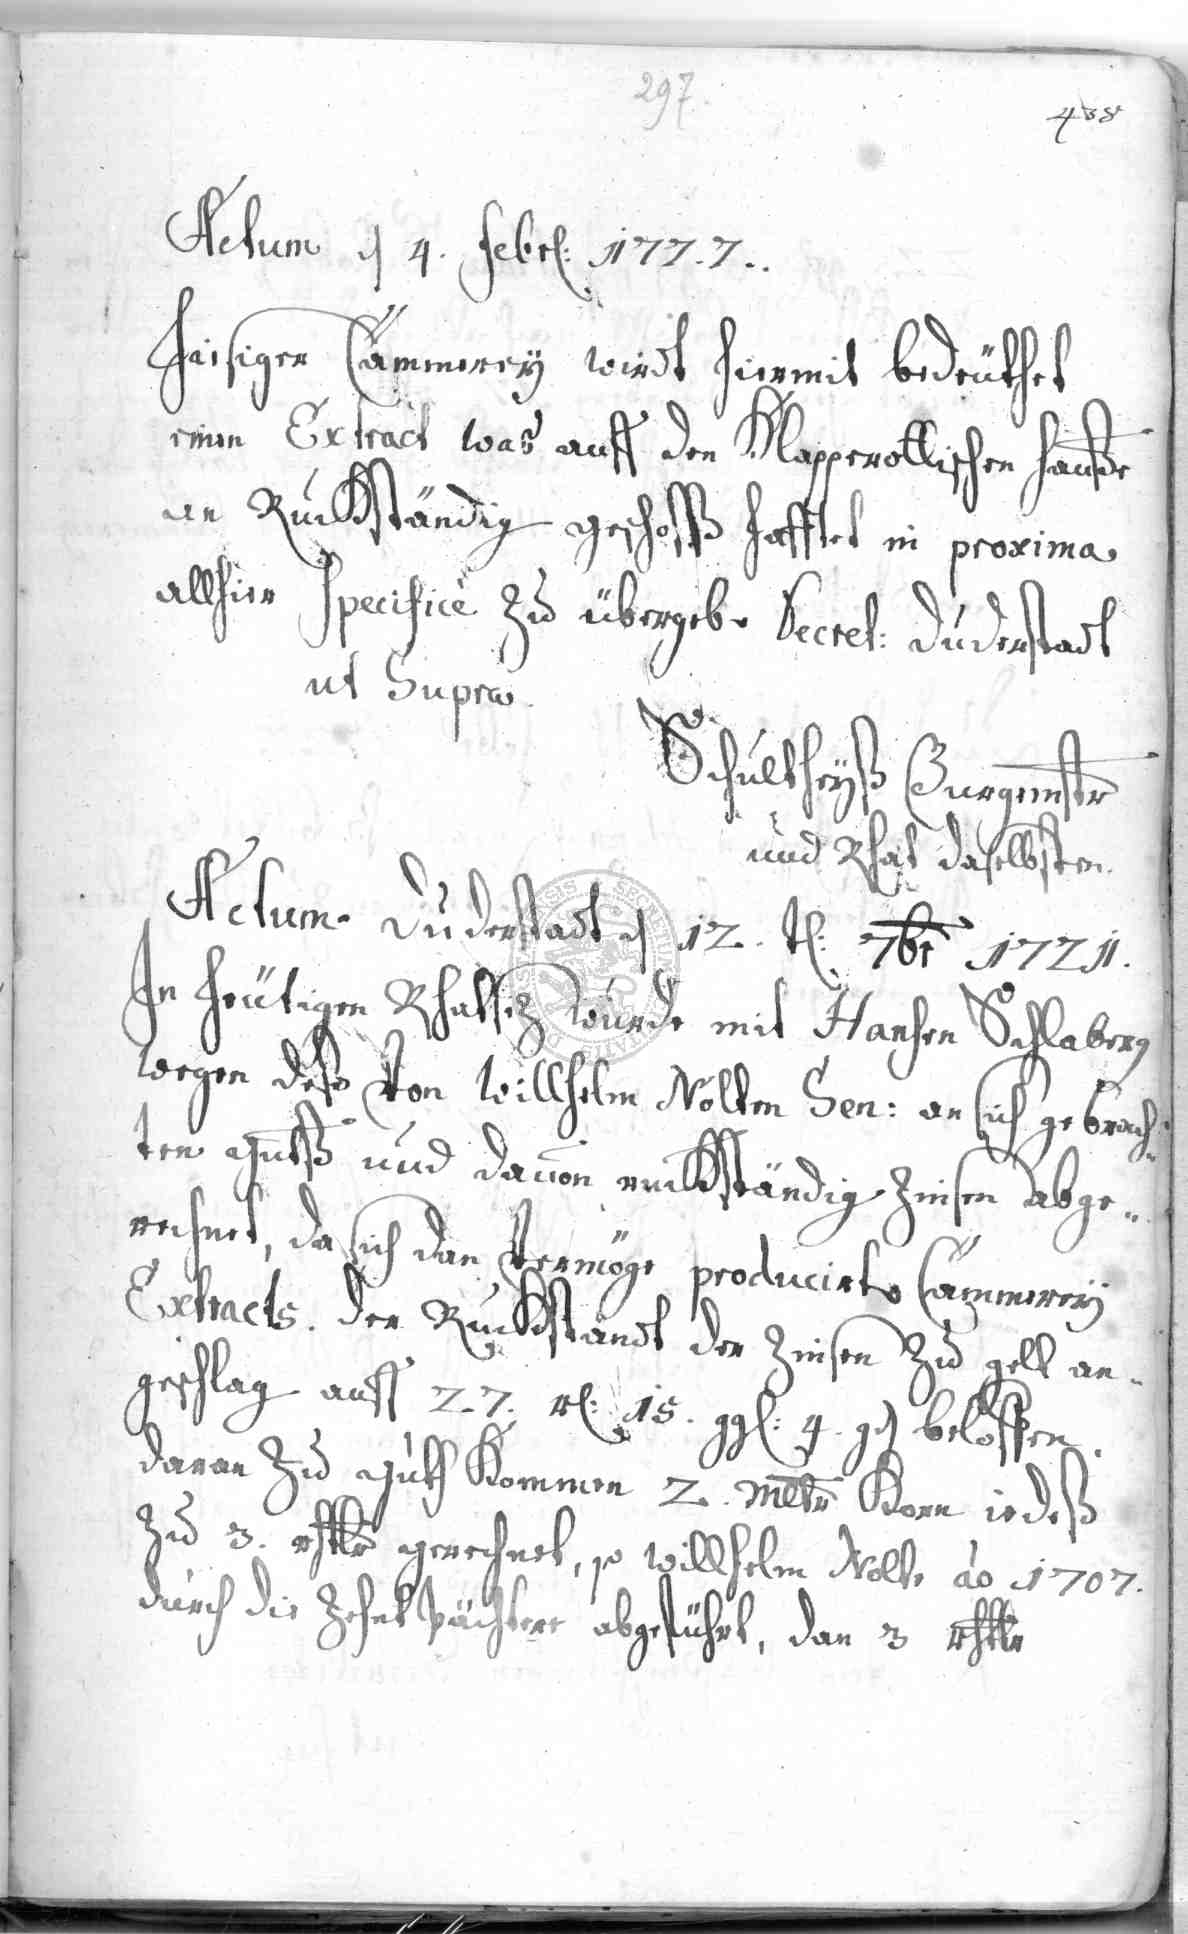 297.
438
Actum d 4. Febr: 1727.
Hiesiger Cämmerey wirdt hiermit bedeüthet
einen Extract was auff den Klapperottischen Hauße
an Rückständig geschoss hafftet in proxima
allhier Specificè zu übergeb. Decret: Duderstadt
ut Supra.
Schultheyß Burgemstr
und Rhat daselbsten.
Actum Duderstadt d 12. t: 7br 1721.
In heütigen Rhatssitz wurde mit Hansen Schlaberg
wegen deß von Willhelm Nolten Sen: an sich gebrach-
ten guthß und davon rückständig Zinsen abge-
rechnet, da sich dan vermöge producirt Cämmerey
Extracts. der Rückstandt der Zinsen zu gelt an-
geschlag auff 27. rl: 15. ggl: 4. belossen.
daran zu guth kommen 2. mltr Korn iedeß
zu 3. rthlr gerechnet, so Willhelm Nolte ao 1707.
durch die Zehntpächtere abgeführt, dan 3 rthlr